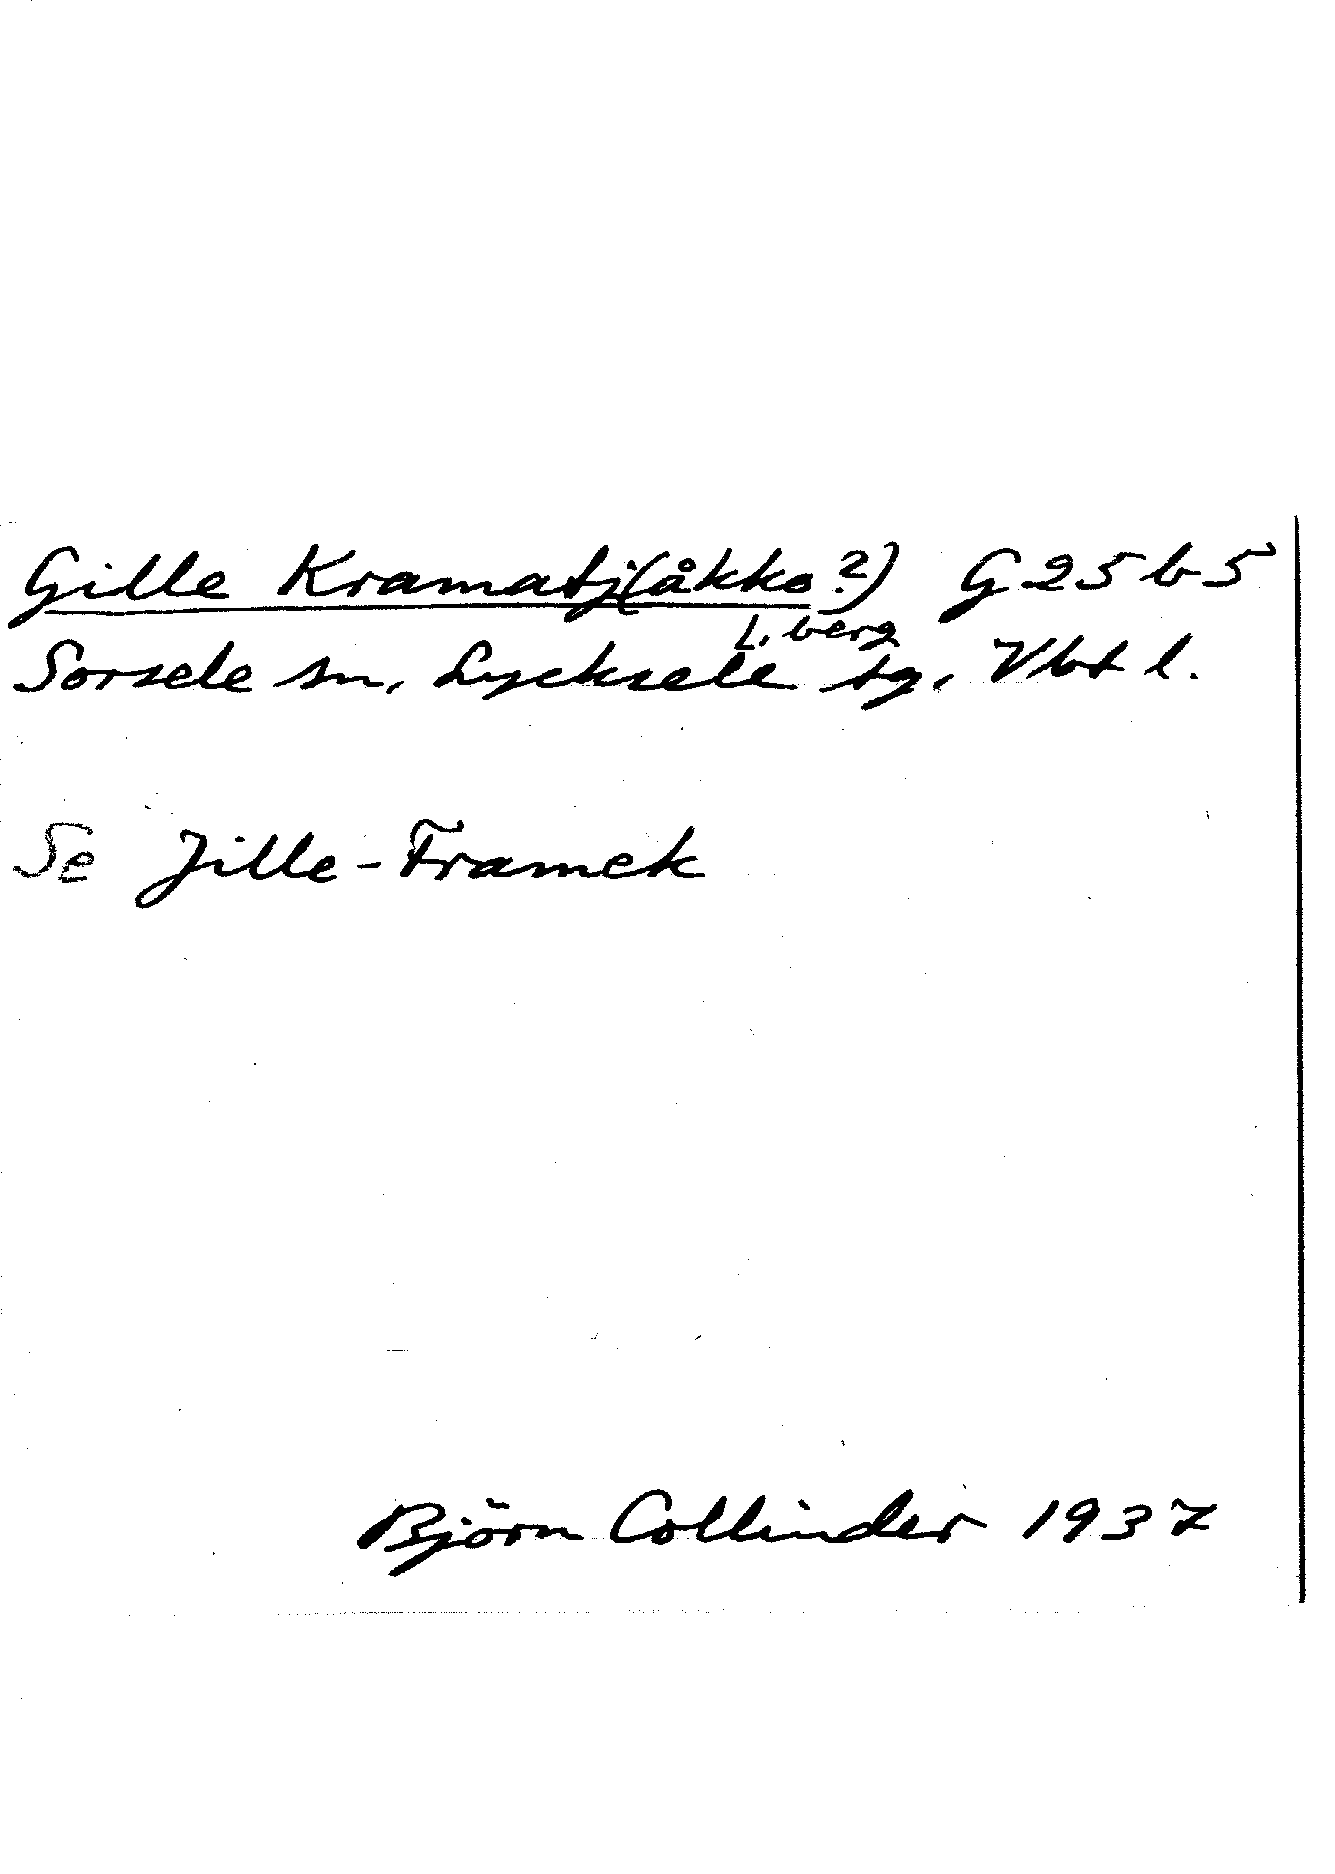 Gille Kramatj(åkko?) G25b5
L. berg
Sorsele sn, Lycksele tg, Vbt l.
Se Jille-Framek
Björn Collinder 1937